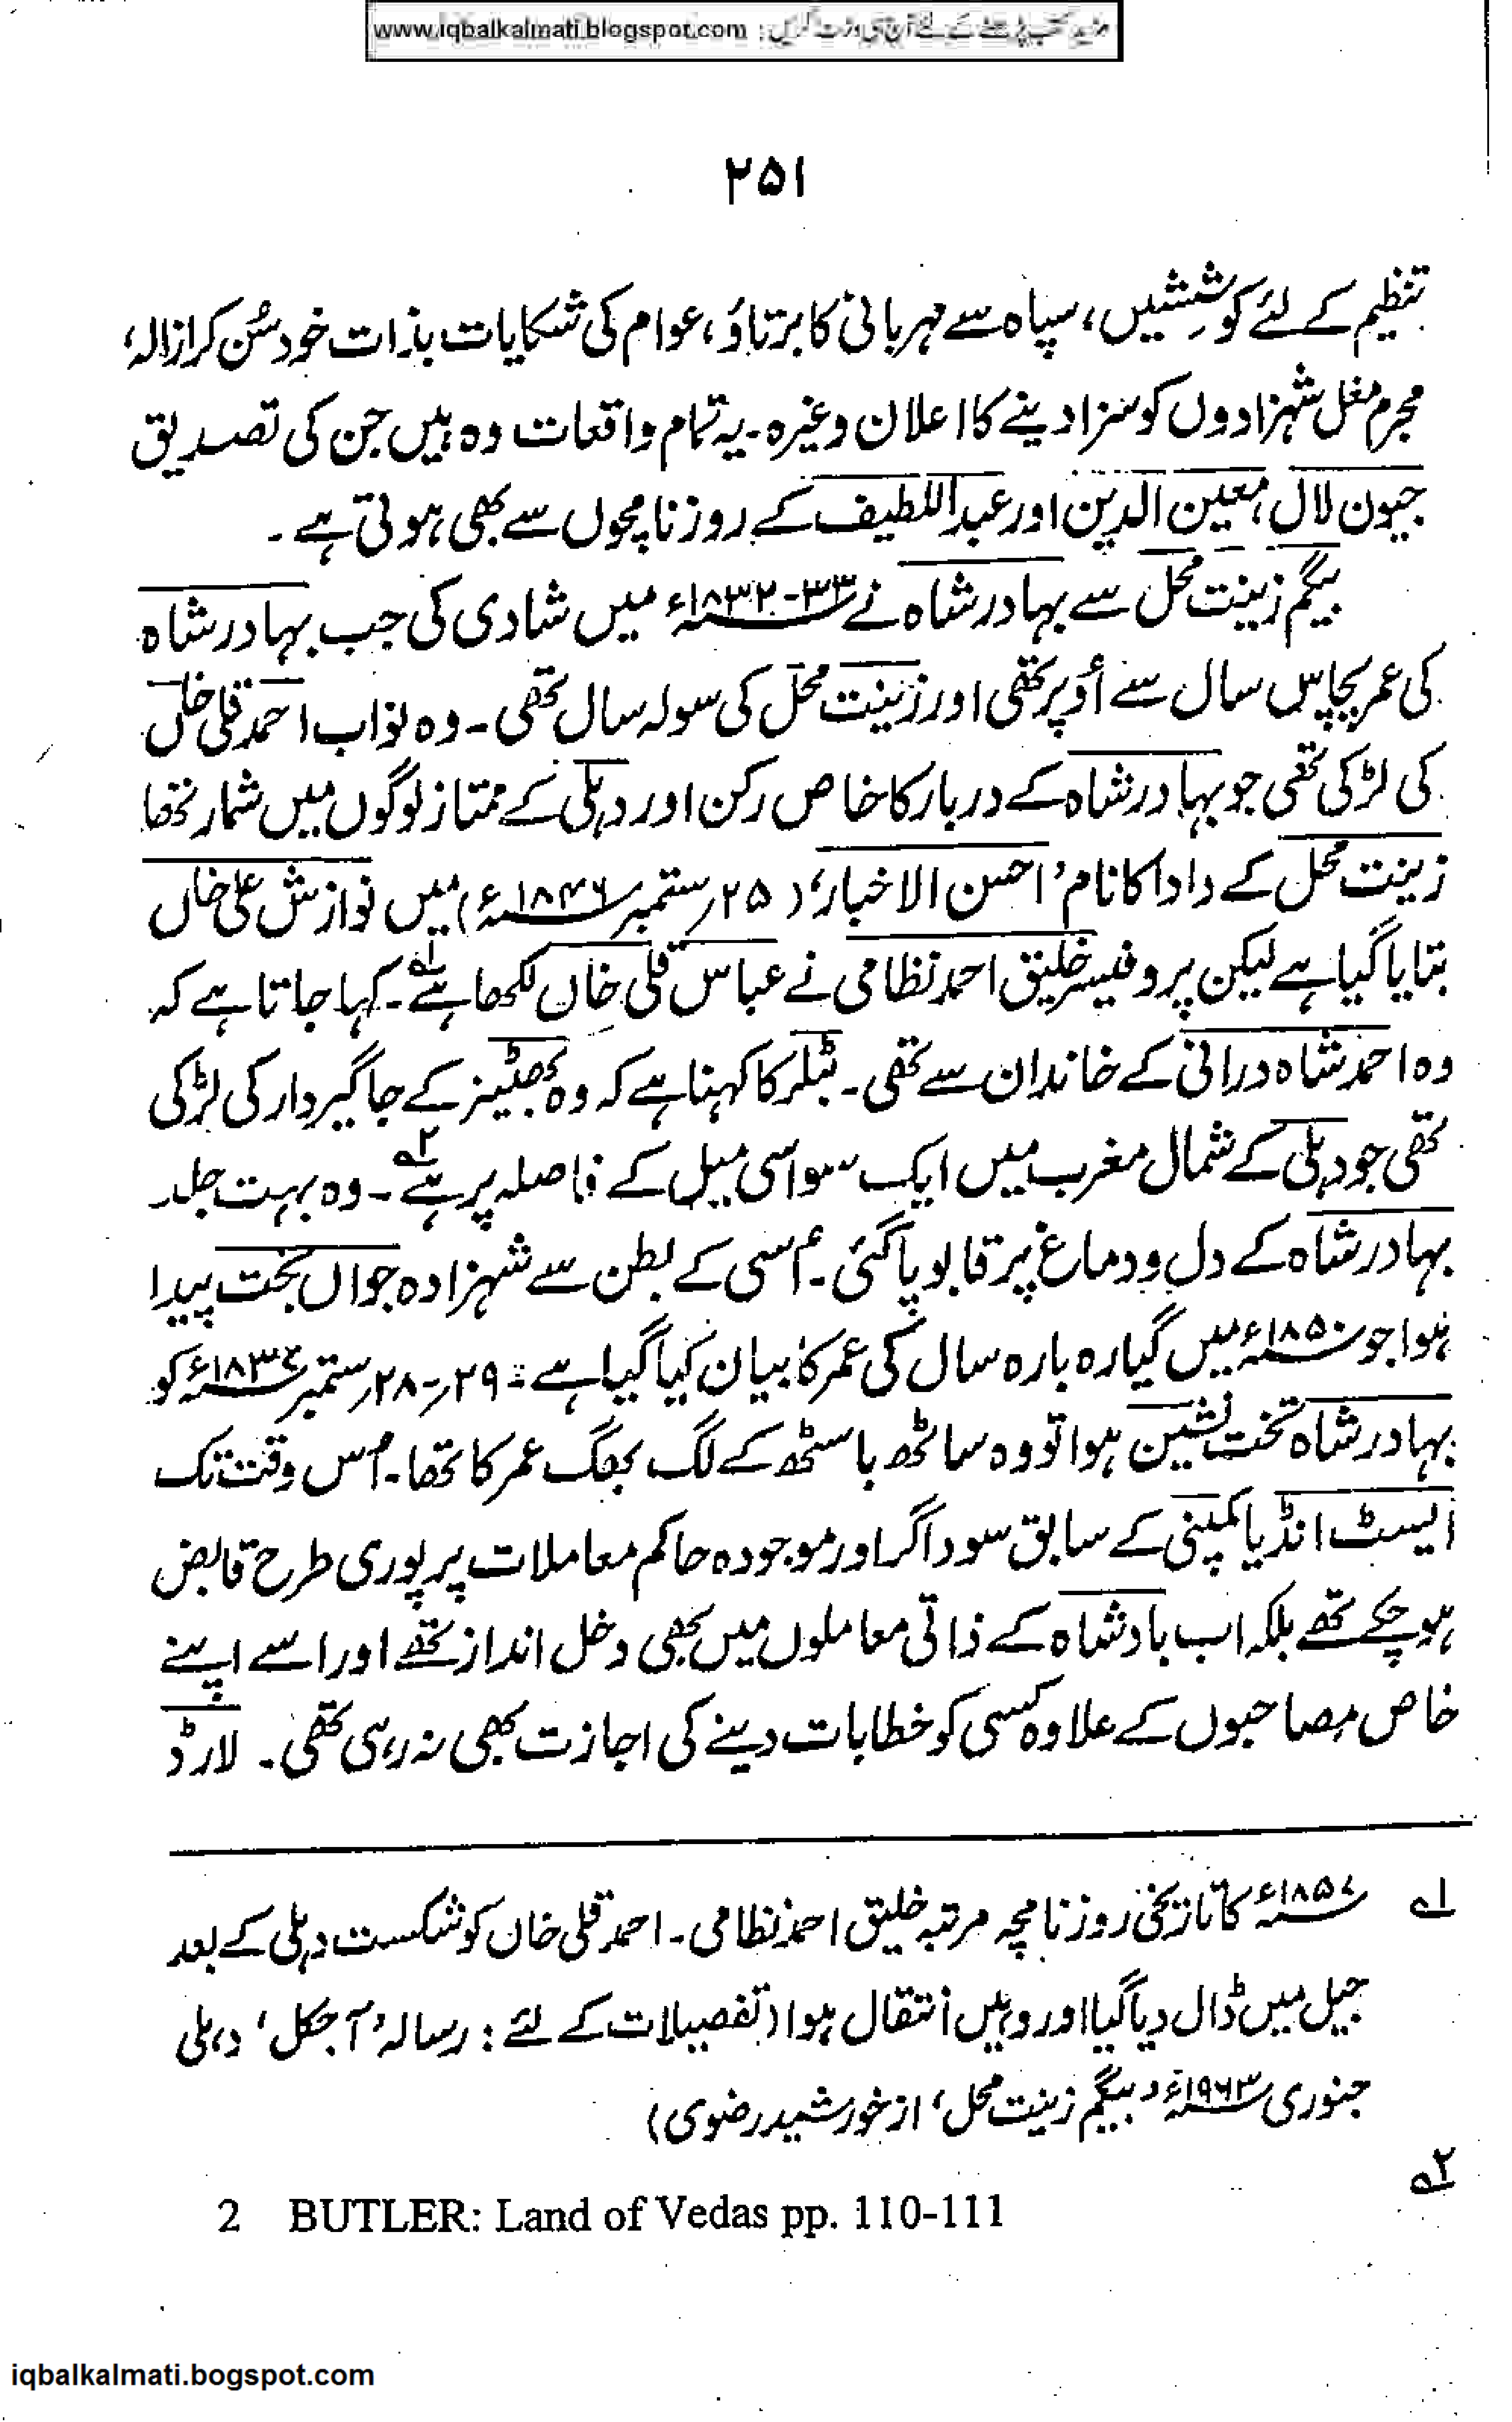 www.iqbalkalmati.blogspot.com : مزید کتب پڑھنے کے لئے آج ہی وزٹ کریں
۲۵۱
تنظیم کے لئے کوششیں، سپاہ سے مہربانی کا برتاؤ، عوام کی شکایات بذات خود سُن کر ازالہ،
مجرم مغل شہزادوں کو سزا دینے کا اعلان وغیرہ۔ یہ تمام واقعات وہ ہیں جن کی تصدیق
جیون لال، معین الدین اور عبداللطیف کے روزنامچوں سے بھی ہوتی ہے۔
بیگم زینت محل سے بہادر شاہ نے ۳۳-۱۸۳۲ء میں شادی کی جب بہادر شاہ
کی عمر پچاس سال سے اُوپر تھی اور زینت محل کی سولہ سال تھی۔ وہ نواب احمد قلی خاں
کی لڑکی تھی جو بہادر شاہ کے دربار کا خاص رکن اور دہلی کے ممتاز لوگوں میں شمار تھا
زینت محل کے دادا کا نام 'احسن الاخبار' (۲۵ ستمبر ۱۸۴۶ء) میں نوازش علی خاں
بتایا گیا ہے لیکن پروفیسر خلیق احمد نظامی نے عباس قلی خاں لکھا ہے۱؎۔ کہا جاتا ہے کہ
وہ احمد شاہ درانی کے خاندان سے تھی۔ بٹلر کا کہنا ہے کہ وہ بھٹیز کے جاگیردار کی لڑکی
تھی جو دہلی کے شمال مغرب میں ایک سو اسی میل کے فاصلہ پر ہے۲؎۔ وہ بہت جلد
بہادر شاہ کے دل و دماغ پر قابو پا گئی۔ اُسی کے بطن سے شہزادہ جواں بخت پیدا
ہوا جو ۱۸۵۰ء میں گیارہ بارہ سال کی عمر کا بیان کیا گیا ہے۔ ۲۹-۲۸ ستمبر ۱۸۳۷ء کو
بہادر شاہ تخت نشین ہوا تو وہ ساٹھ باسٹھ کے لگ بھگ عمر کا تھا۔ اُس وقت تک
ایسٹ انڈیا کمپنی کے سابق سوداگر اور موجودہ حاکم معاملات پر پوری طرح قابض
ہو چکے تھے بلکہ اب بادشاہ کے ذاتی معاملوں میں بھی دخل انداز تھے اور اسے اپنے
خاص مصاحبوں کے علاوہ کسی کو خطابات دینے کی اجازت بھی نہ رہی تھی۔ لارڈ
۱؎ ۱۸۵۷ء کا تاریخی روزنامچہ مرتبہ خلیق احمد نظامی۔ احمد قلی خاں کو شکست دہلی کے بعد
جیل میں ڈال دیا گیا اور وہیں انتقال ہوا (تفصیلات کے لئے: رسالہ 'آجکل' دہلی
جنوری ۱۹۶۳ء 'بیگم زینت محل' از خورشید رضوی)
۲؎
2 BUTLER: Land of Vedas pp. 110-111
iqbalkalmati.bogspot.com